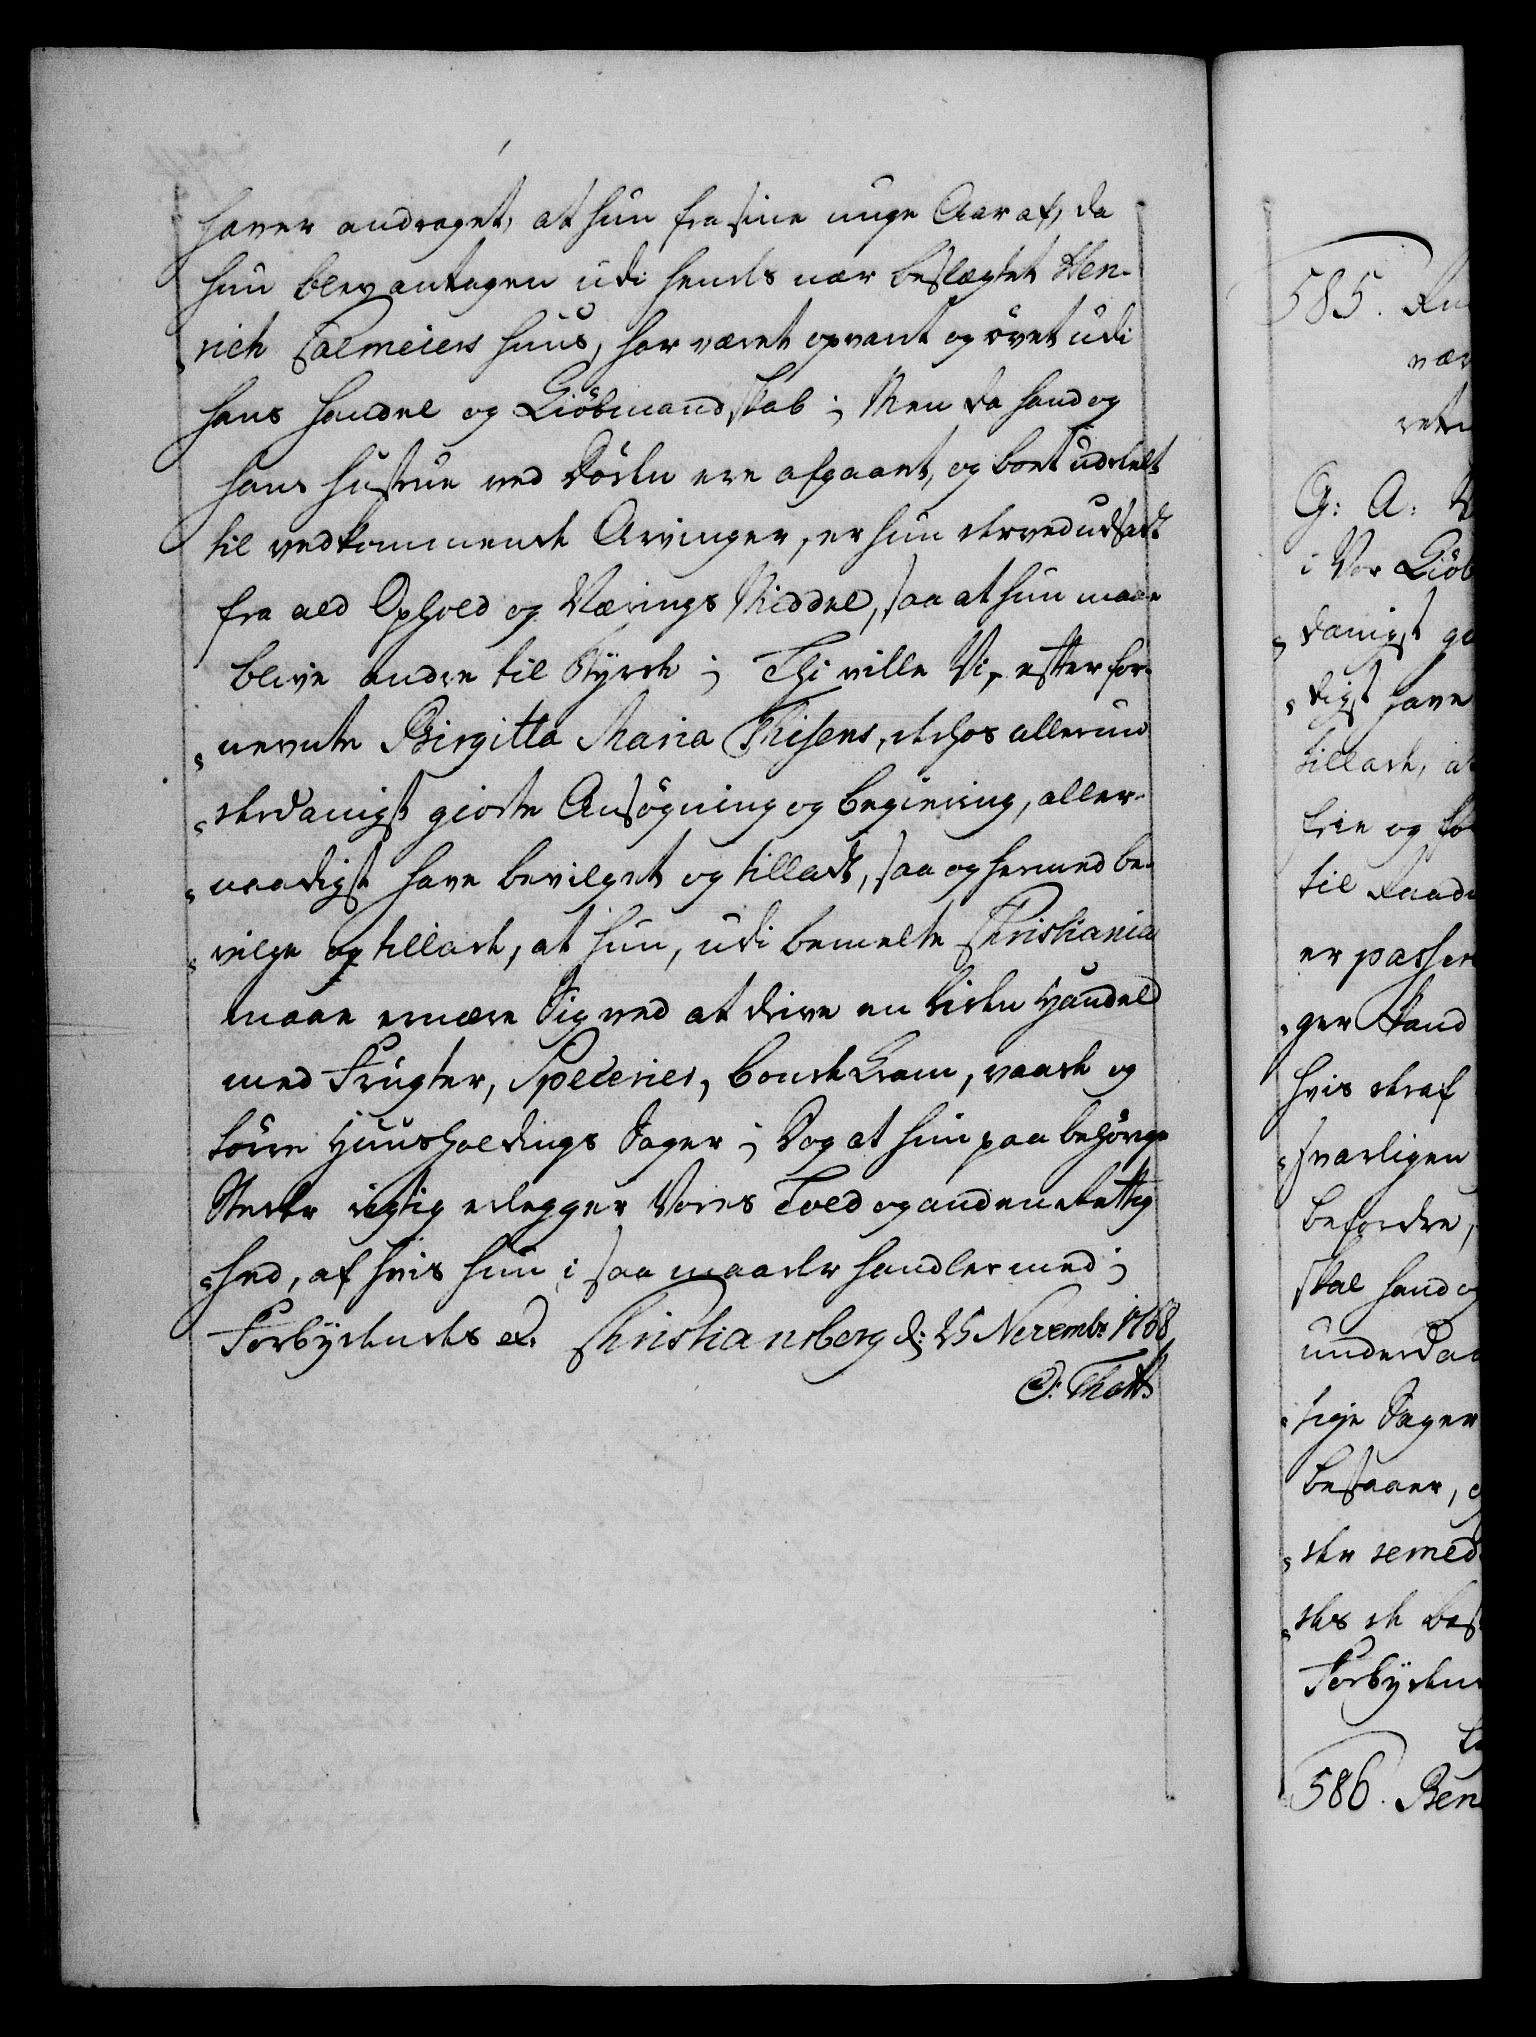 haver andraget, at hun fra sine unge Aar af, da
hun blev antagen udi hendes nær beslægtet Hen-
rich Falmeiers Huus, har været opvant og övet udi
hans Handel og Kiöbmandskab; Men da hand og
hans Hustrue ved Döden ere afgaaet, og boet udeelt
til vedkommende Arvinger, er hun derved udsadt
fra ald Ophold og Nærings Middel, saa at hun maae
blive andre til Byrde; Thi ville Vi, efter for-
nevnte Birgitta Maria Thisens, derhos allerun
derdanigst giorte Ansögning og begiering, aller-
naadigst have bevilget og tilladt, saa og hermed be-
vilge og tillade, at hun, udi bemelte Christiania
maae ernære Sig ved at drive en liden Handel
med Frugter, Specerier, bonde Kram, vaade og
törre Huusholdings Sager; Dog at hun paa behörige
Steder rigtig erlegger Vores Told og anden rettig
hed, af hvis hun i saa maader handler med;
Forbydendes etc. Christiansborg d: 25 Novembr 1768
O: Thott
585.
G: A: V
i Vor Kiöb
danigst
digst have
tillade, at
til Raad
er passer
ger Stand
hvis deraf
svarligen
befordre,
skal hand og
underda
tige Sager
bestaaer,
der remed
des de best
Forbyden
586. Ben